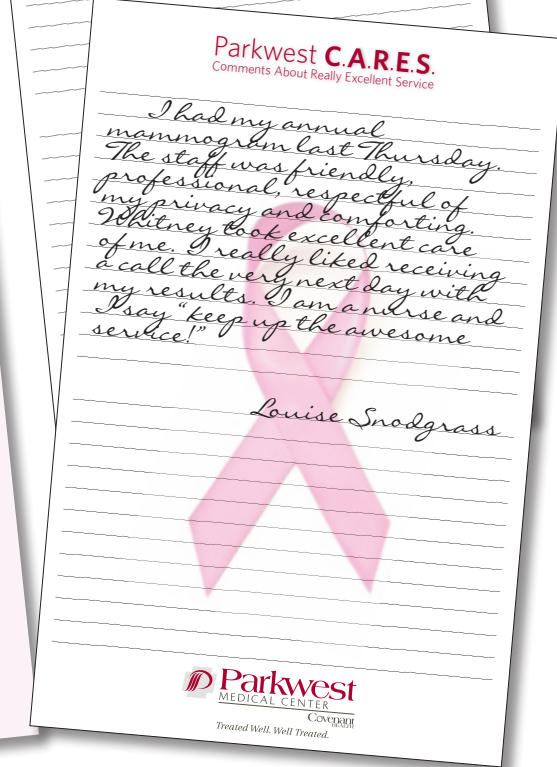 Parkwest C.A.R.E.S.
Comments About Really Excellent Service
I had my annual
mammogram last Thursday.
The staff was friendly,
professional, respectful of
my privacy and comforting.
Whitney took excellent care
of me. I really liked receiving
a call the very next day with
my results. I am a nurse and
I say “keep up the awesome
service!”
Louise Snodgrass
Parkwest
MEDICAL CENTER
Covenant
HEALTH
Treated Well. Well Treated.